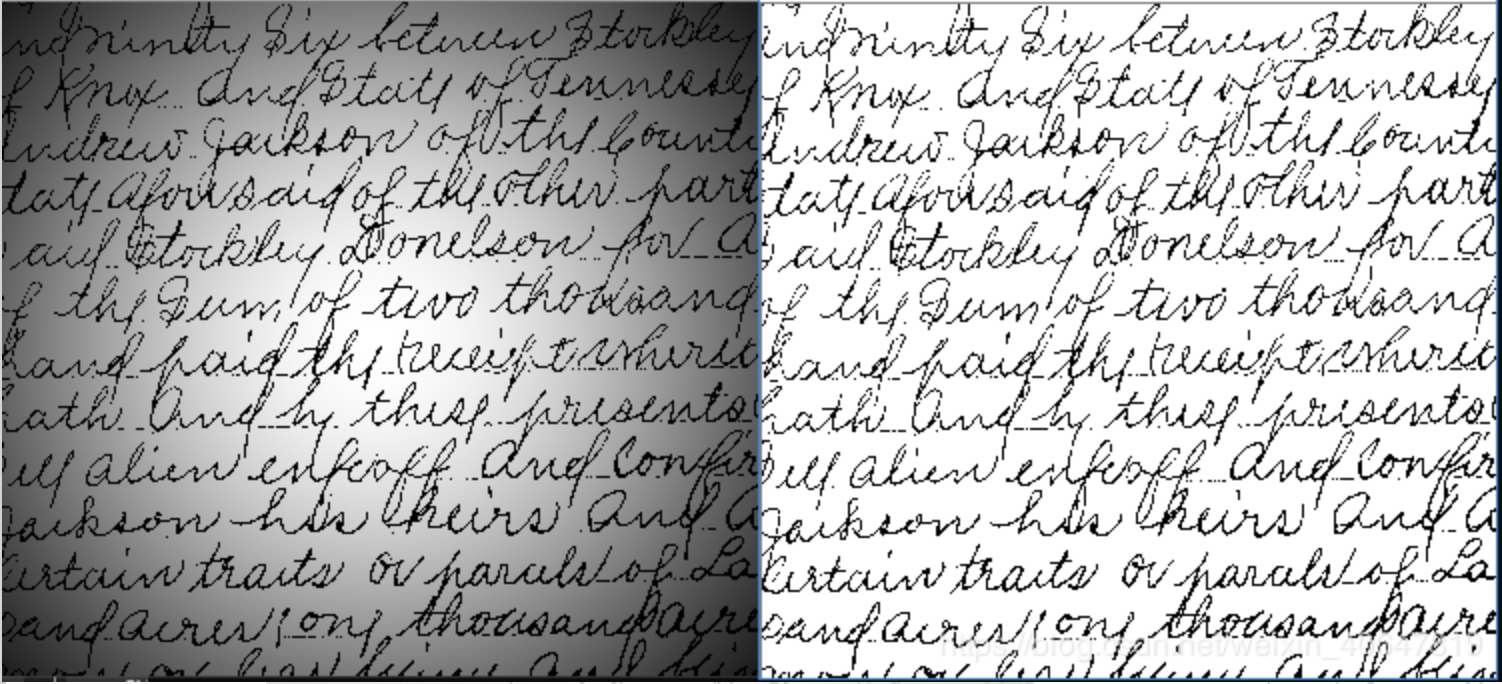 nd Ninty Six between Stockley
f Knox And State of Tennessey
Andrew Jackson of the County
tate Aforesaid of the other part
aid Stockley Donelson for A
f the Sum of two thousand
hand paid the receipt wherei
hath And by these presents
ell alien enfeoff And Confir
Jackson his heirs And A
certain tracts or parcels of La
sand acres one thousand acre
nd Ninty Six between Stockley
f Knox And State of Tennessey
Andrew Jackson of the County
tate Aforesaid of the other part
aid Stockley Donelson for A
f the Sum of two thousand
hand paid the receipt wherei
hath And by these presents
ell alien enfeoff And Confir
Jackson his heirs And A
certain tracts or parcels of La
sand acres one thousand acre
https://blog.csdn.net/weixin_40647819